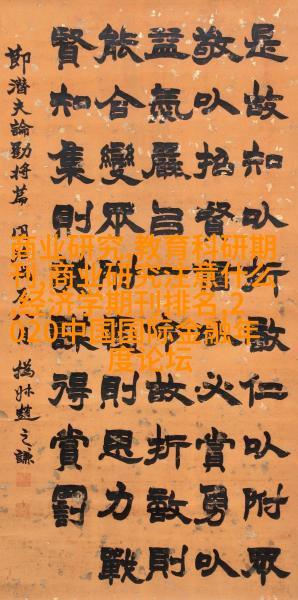 商业研究,教育科研期
刊,商业研究注意什么
,经济学期刊排名,2
020中国国际金融年
度论坛
是故知㕥折敵仁㕥附眾
敬㕥招賢必賞勇㕥
益氣嚴㠯故折敵則
能合變眾則思力戰
賢知集則謀得賞罰
節潛夫論勸將篇
撝叔趙之謙